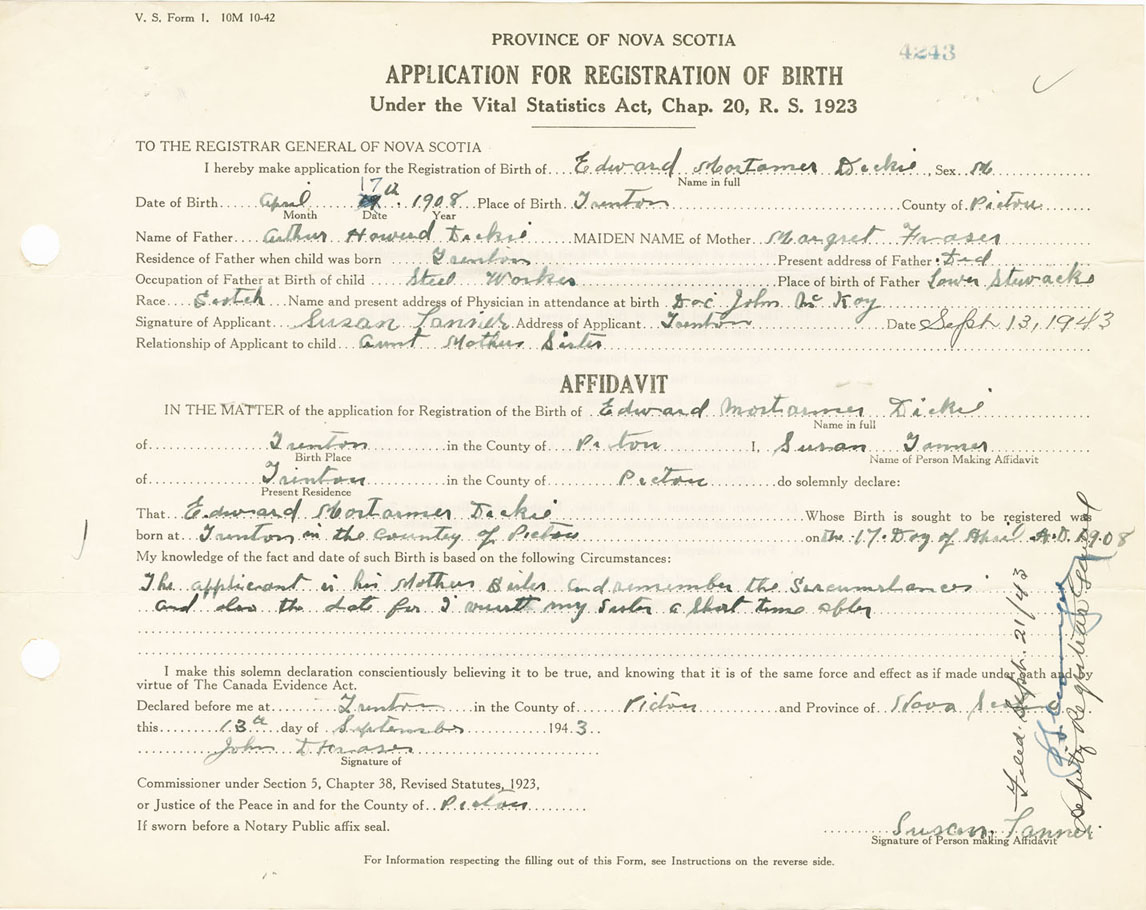 V. S. Form 1. 10M 10-42
PROVINCE OF NOVA SCOTIA
4243
APPLICATION FOR REGISTRATION OF BIRTH
Under the Vital Statistics Act, Chap. 20, R. S. 1923
TO THE REGISTRAR GENERAL OF NOVA SCOTIA
I hereby make application for the Registration of Birth of Edward Mortarmer Dickie, Sex M
Name in full
Date of Birth April 17th 1908 Place of Birth Trenton County of Picton
Month Date Year
Name of Father Arthur Howerd Dickie MAIDEN NAME of Mother Margret Fraser
Residence of Father when child was born Trenton Present address of Father Ded
Occupation of Father at Birth of child Steel Worker Place of birth of Father Lower Stewacke
Race Scotch Name and present address of Physician in attendance at birth Doc John Mc Koy
Signature of Applicant Susan Tanner Address of Applicant Trenton Date Sept 13, 1943
Relationship of Applicant to child Aunt Mothers Sister
AFFIDAVIT
IN THE MATTER of the application for Registration of the Birth of Edward Mortarmer Dickie
Name in full
of Trenton in the County of Picton I, Susan Tanner
Birth Place Name of Person Making Affidavit
of Trenton in the County of Picton do solemnly declare:
Present Residence
That Edward Mortarmer Dickie Whose Birth is sought to be registered was
born at Trenton in the Country of Picton on the 17 Day of April A.D. 1908
My knowledge of the fact and date of such Birth is based on the following Circumstances:
The applicant is his Mothers Sister and remember the Sircumstances
and also the date for I my Sister a Short time after
I make this solemn declaration conscientiously believing it to be true, and knowing that it is of the same force and effect as if made under oath and by
virtue of The Canada Evidence Act.
Declared before me at Trenton in the County of Picton and Province of Nova Scotia
this 13th day of September 1943
John D Fraser
Signature of
Commissioner under Section 5, Chapter 38, Revised Statutes, 1923,
or Justice of the Peace in and for the County of Picton
If sworn before a Notary Public affix seal.
Susan Tanner
Signature of Person making Affidavit
For Information respecting the filling out of this Form, see Instructions on the reverse side.
Filed Sept. 21/43
Deputy Registrar General